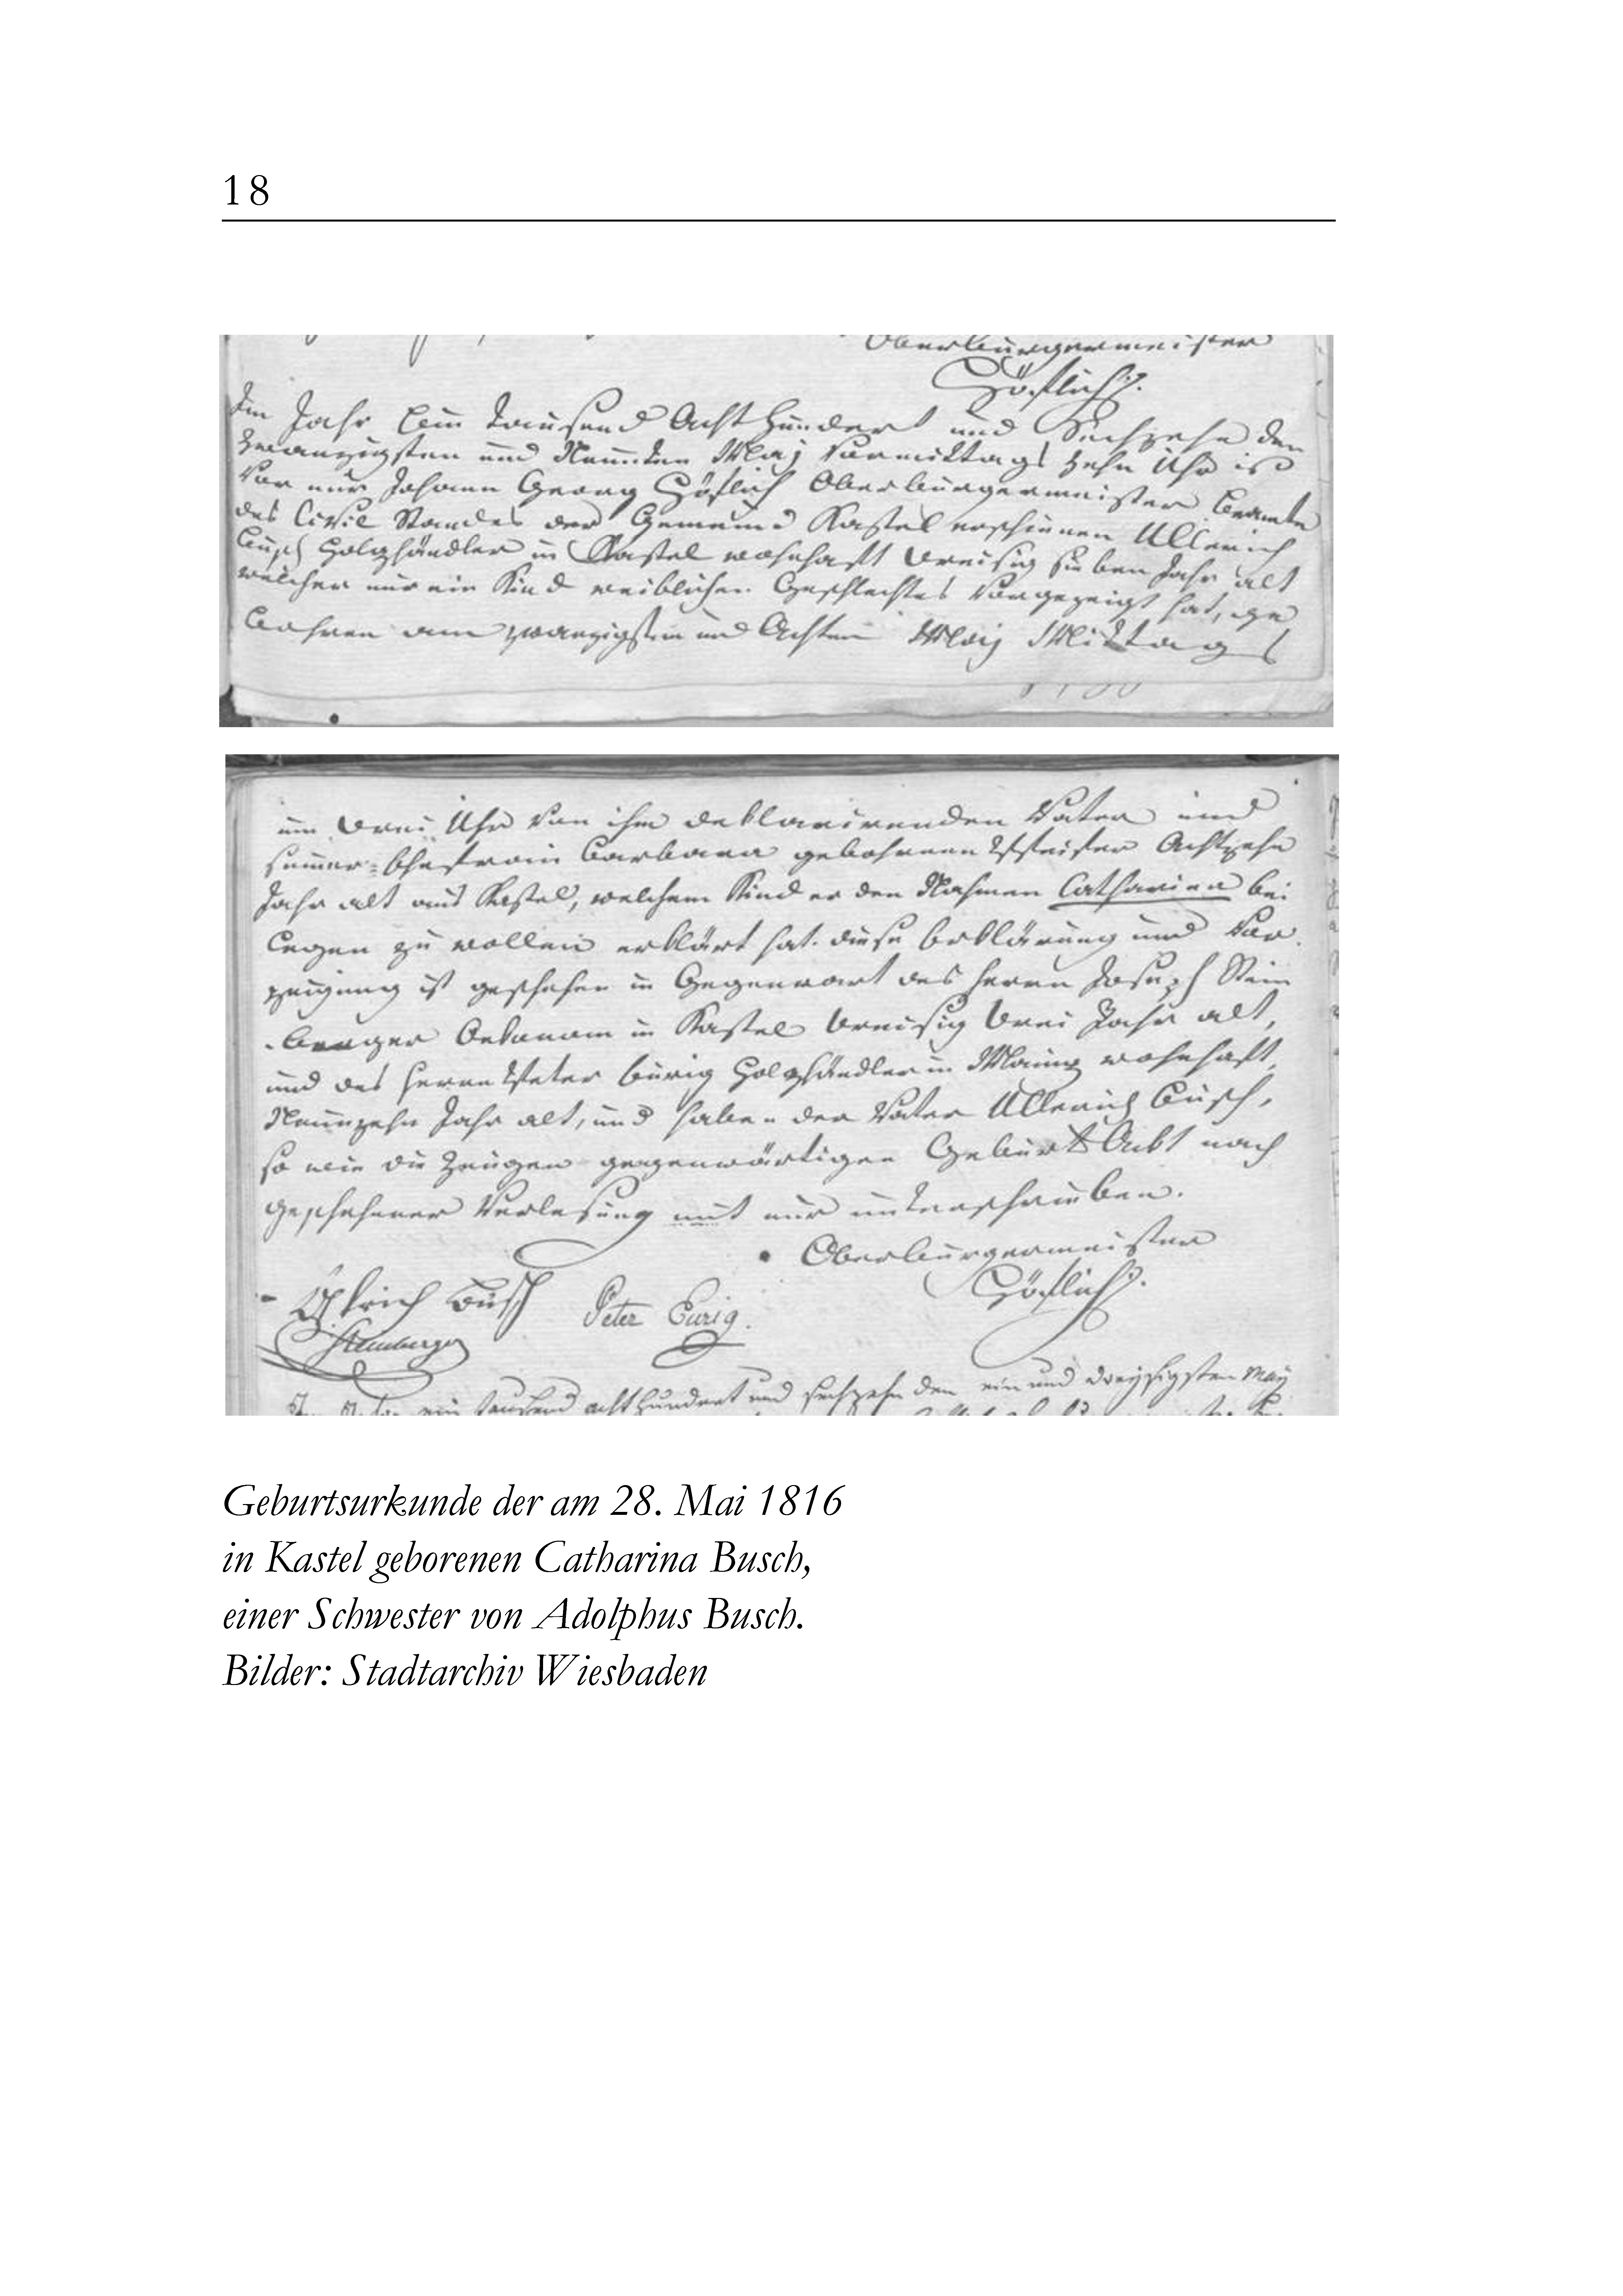 18
Oberbürgermeister
Höflich
Im Jahr Ein Tausend Acht Hundert und Sechzehn den
zwanzigsten und Neunten Maj Vormittags zehn Uhr ist
Vor mir Johann Georg Höflich Oberbürgermeister Beamte
des Civil Standes der Gemeind Kastel erschienen Ullerich
Busch Holzhändler in Kastel wohnhaft Dreisig sieben Jahr alt
welcher mir ein Kind weiblichen Geschlechtes Vorgezeigt hat, ge
bohren am zwanzigsten und Achten Maij Mittags
um Drei Uhr Von ihm deklarirenden Vater und
seiner Ehefrau Barbara gebohrene Pfeifer Achtzehn
Jahr alt aus Kastel, welchem Kind er den Nahmen Catharina bei
legen zu wollen erklärt hat. diese Erklärung und Vor
zeigung ist geschehen in Gegenwart des Herrn Joseph Stein
berger Oekonom in Kastel Dreisig Drei Jahr alt,
und des Herrn Peter Eurig Holzhändler in Mainz wohnhaft,
Neunzehn Jahr alt, und haben der Vater Ullerich Busch,
so wie die Zeugen gegenwärtigen Geburts Ackt nach
geschehener Verlesung mit mir unterschrieben.
Oberbürgermeister
Höflich
Ulrich Busch Peter Eurig.
Steinberger
ein tausend acht hundert und sechzehn den ein und dreysigsten May
Geburtsurkunde der am 28. Mai 1816
in Kastel geborenen Catharina Busch,
einer Schwester von Adolphus Busch.
Bilder: Stadtarchiv Wiesbaden